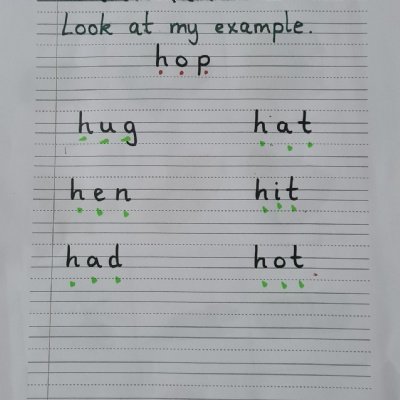 Look at my example.
hop
hug hat
hen hit
had hot